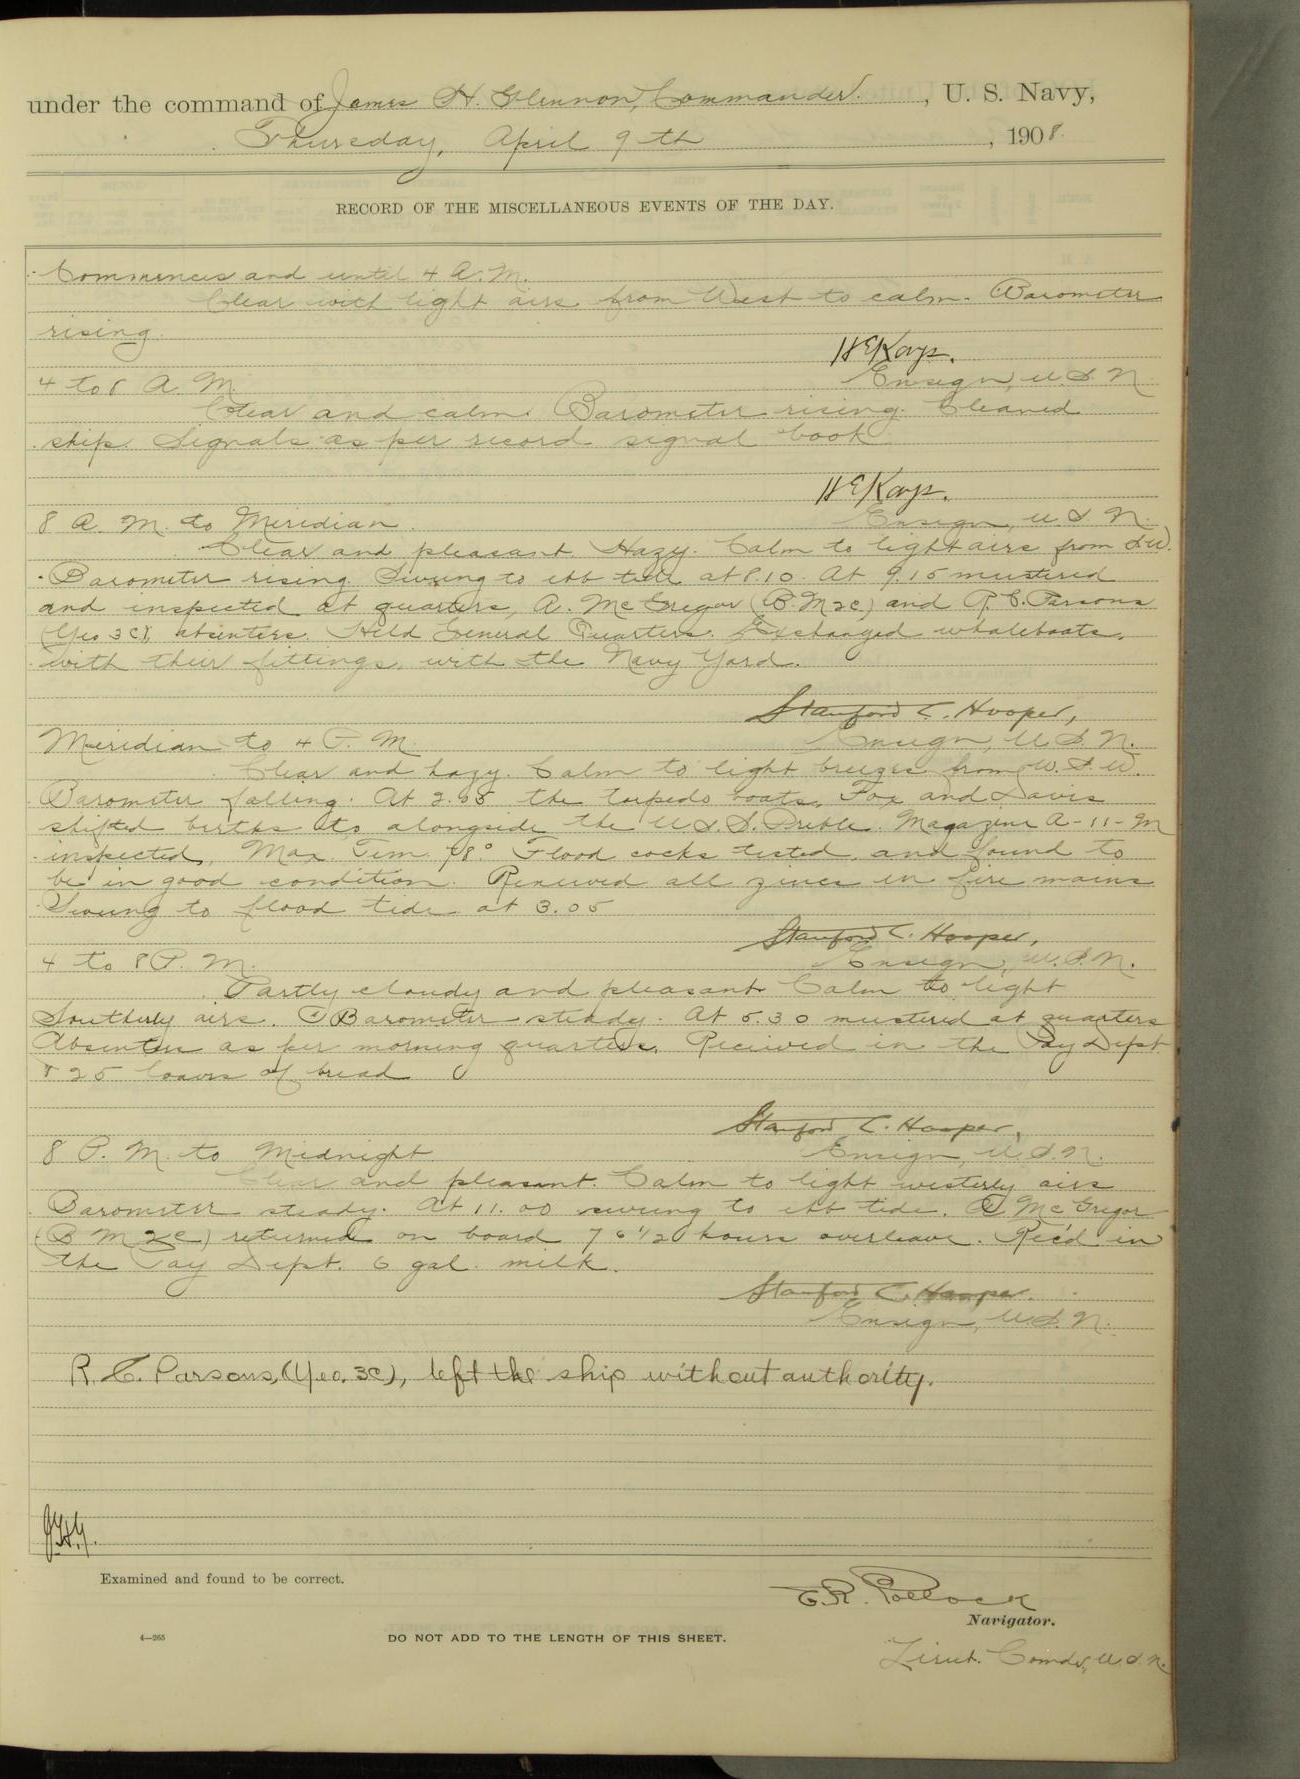 under the command of James H. Glennon, Commander. , U. S. Navy,
Thursday, April 9th , 1908.
RECORD OF THE MISCELLANEOUS EVENTS OF THE DAY.
Commences and until 4 A.M.
Clear with light airs from West to calm. Barometer
rising.
H E Kays.
4 to 8 A. M. Ensign, U.S.N.
Clear and calm. Barometer rising. Cleaned
ship. Signals as per record signal book
H E Kays.
8 A. M. to Meridian. Ensign, U S N.
Clear and pleasant. Hazy. Calm to light airs from S.W.
Barometer rising. Swung to ebb tide at 8.10. At 9.15 mustered
and inspected at quarters, A. McGregor (B.M2c.) and R.C. Parsons
(Yeo 3c), absentees. Held General Quarters. Exchanged whaleboats,
with their fittings, with the Navy Yard.
Stanford C. Hooper,
Meridian to 4 P. M. Ensign, U.S.N.
Clear and hazy. Calm to light breezes from W.S.W.
Barometer falling. At 2.05 the torpedo boats, Fox and Davis
shifted births to alongside the U.S.S. Preble. Magazine A-11-M
inspected, Max. Tem. 78° Flood cocks tested, and found to
be in good condition. Renewed all zincs in fire mains
Swung to flood tide at 3.05
Stanford C. Hooper,
4 to 8 P. M. Ensign, U.S.N.
Partly cloudy and pleasant Calm to light
Southerly airs. Barometer steady. At 5.30 mustered at quarters
Absentees as per morning quarters. Received in the Pay Dept.
825 loaves of bread
Stanford C. Hooper,
8 P. M. to Midnight Ensign, U.S.N.
Clear and pleasant. Calm to light westerly airs
Barometer steady. At 11.00 swung to ebb tide. A McGregor
(B M 2c) returned on board 76 1/2 hours overleave. Rec'd in
the Pay Dept. 6 gal. milk.
Stanford C. Hooper.
Ensign, U.S.N.
R. C. Parsons, (Yeo. 3c), left the ship without authority.
J.H.G.
Examined and found to be correct.
E.R. Pollock
Navigator.
4—265 DO NOT ADD TO THE LENGTH OF THIS SHEET.
Lieut. Comdr, U.S.N.